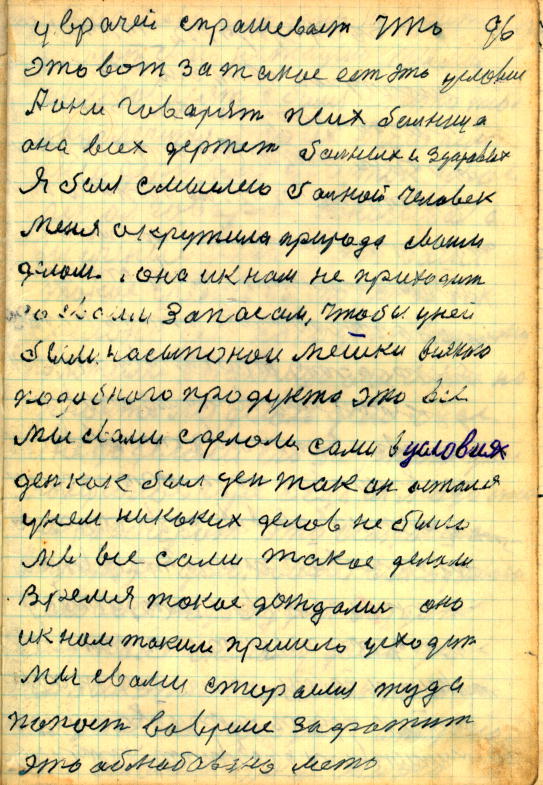 у врачей спрашевает что 96
это вот за такое ест это условие
А они говарят псих болница
она всех держет болных и здаровых
Я был смыслено болной человек
меня окружила природа своим
делом. она и к нам не приходит
со своим запасам, чтобы у ней
были насыпонои мешки всякго
подобного продукта это все
мы свами сделоли сами в условиях
ден как был ден так он остался
у нем никоких делов не было
мы все сами такое делали
Время такое дождалис оно
и к нам таким пришло уходит
мы свами стораемся туда
попаст вовремя захватит
это облюбовано места